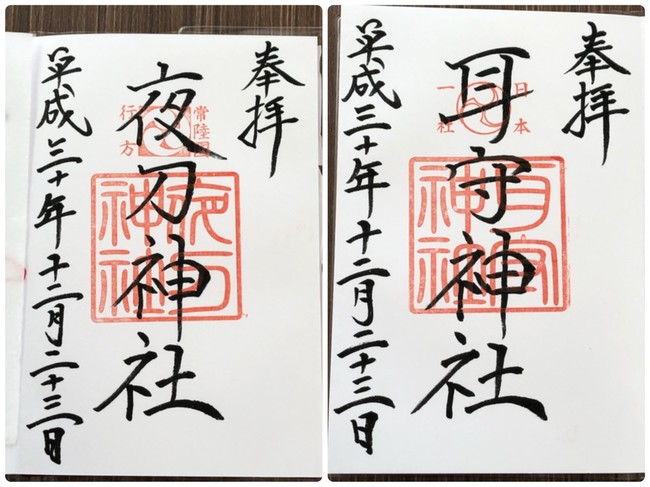 奉拝
常陸国
行方
夜刀神社
夜刀神社
平成三十年十二月二十三日
奉拝
日本
一社
耳守神社
耳守神社
平成三十年十二月二十三日